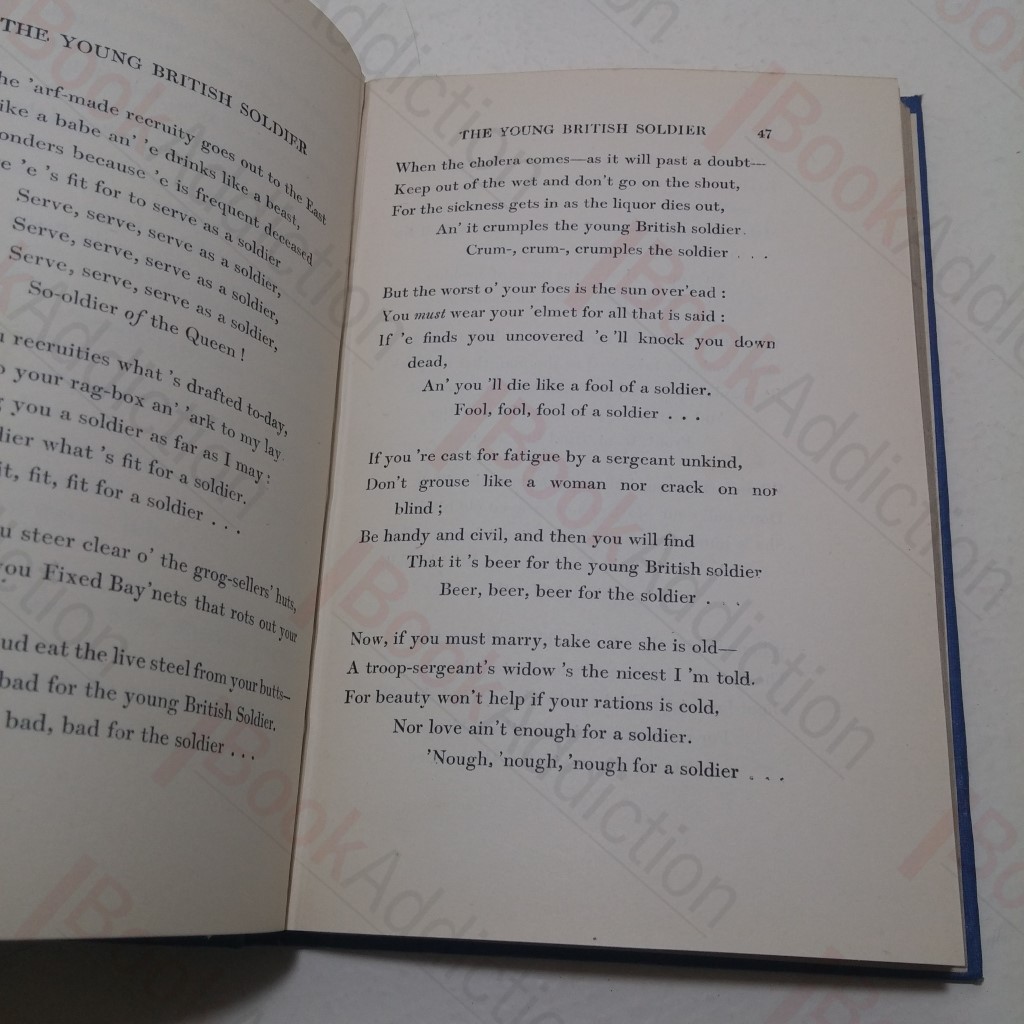 THE YOUNG BRITISH SOLDIER
'arf-made recruity goes out to the East
like a babe an' 'e drinks like a beast,
because 'e is frequent deceased
'e 's fit for to serve as a soldier
Serve, serve, serve as a soldier,
Serve, serve, serve as a soldier,
Serve, serve, serve as a soldier,
So-oldier of the Queen !
recruities what 's drafted to-day,
your rag-box an' 'ark to my lay
you a soldier as far as I may :
what 's fit for a soldier.
fit, fit for a soldier . . .
steer clear o' the grog-sellers' huts,
you Fixed Bay'nets that rots out your
eat the live steel from your butts—
bad for the young British Soldier.
bad, bad for the soldier . . .
THE YOUNG BRITISH SOLDIER 47
When the cholera comes—as it will past a doubt—
Keep out of the wet and don't go on the shout,
For the sickness gets in as the liquor dies out,
An' it crumples the young British soldier.
Crum-, crum-, crumples the soldier . . .
But the worst o' your foes is the sun over'ead :
You must wear your 'elmet for all that is said :
If 'e finds you uncovered 'e 'll knock you down
dead,
An' you 'll die like a fool of a soldier.
Fool, fool, fool of a soldier . . .
If you 're cast for fatigue by a sergeant unkind,
Don't grouse like a woman nor crack on nor
blind ;
Be handy and civil, and then you will find
That it 's beer for the young British soldier
Beer, beer, beer for the soldier . .
Now, if you must marry, take care she is old—
A troop-sergeant's widow 's the nicest I 'm told.
For beauty won't help if your rations is cold,
Nor love ain't enough for a soldier.
'Nough, 'nough, 'nough for a soldier . . .
BookAddiction